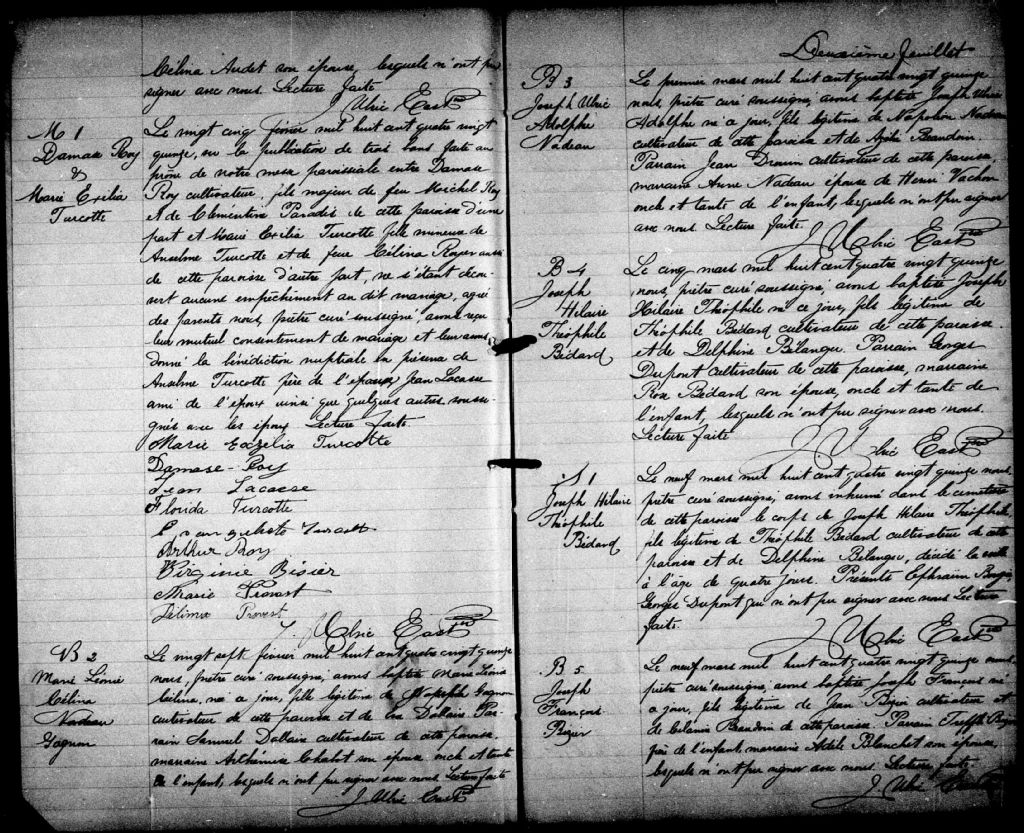 Célina Audet son épouse, lesquels n'ont pu
signer avec nous. Lecture faite
J. Ulric East Ptre
M 1
Damase Roy
&
Marie Exilia
Turcotte
Le vingt cinq février mil huit cent quatre vingt
quinze, vu la publication de trois bans faite au
prône de notre messe paroissiale entre Damase
Roy cultivateur, fils majeur de feu Michel Roy
et de Clementine Paradis de cette paroisse d'une
part et Marie Exilia Turcotte fille mineure de
Anselme Turcotte et de feue Célina Royer aussi
de cette paroisse d'autre part, ne s'étant décou-
vert aucune empêchement au dit mariage, agréé
des parents nous, prêtre curé soussigné, avons reçu
leur mutuel consentement de mariage et leur avons
donné la bénédiction nuptiale en présence de
Anselme Turcotte père de l'épouse, Jean Lacasse
ami de l'époux ainsi que quelques autres soussi-
gnés avec les époux. Lecture faite.
Marie Exzelia Turcotte
Damase Roy
Jean Lacasse
Florida Turcotte
Evangeliste Turcott
Arthur Roy
Virginie Bisier
Marie Provost
Délima Provost
J. Ulric East Ptre
B 2
Marie Léonie
Célina
Nadeau
Gagnon
Le vingt sept février mil huit cent quatre vingt quinze
nous, prêtre curé soussigné, avons baptisé Marie Léonie
Célina, née ce jour, fille légitime de Joseph Gagnon
cultivateur de cette paroisse et de Léa Dallain Par-
rain Samuel Dallain cultivateur de cette paroisse,
marraine Arthémise Chabot son épouse oncle et tante
de l'enfant, lesquels n'ont pu signer avec nous Lecture faite
J. Ulric East Ptre
Deuxième feuillet
B 3
Joseph Ulric
Adolphe
Nadeau
Le premier mars mil huit cent quatre vingt quinze
nous, prêtre curé soussigné, avons baptisé Joseph Ulric
Adolphe né ce jour, fils légitime de Napoléon Nadeau
cultivateur de cette paroisse et de Azilie Beaudoin.
Parrain Jean Drouin cultivateur de cette paroisse,
marraine Anne Nadeau épouse de Henri Vachon
oncle et tante de l'enfant, lesquels n'ont pu signer
avec nous. Lecture faite.
J. Ulric East Ptre
B 4
Joseph
Hilaire
Théophile
Bédard
Le cinq mars mil huit cent quatre vingt quinze
nous, prêtre curé soussigné, avons baptisé Joseph
Hilaire Théophile né ce jour, fils légitime de
Théophile Bédard cultivateur de cette paroisse
et de Delphine Bélanger. Parrain Georges
Dupont cultivateur de cette paroisse, marraine
Rose Bédard son épouse, oncle et tante de
l'enfant, lesquels n'ont pu signer avec nous.
Lecture faite
J. Ulric East Ptre
S 1
Joseph Hilaire
Théophile
Bédard
Le neuf mars mil huit cent quatre vingt quinze nous,
prêtre curé soussigné, avons inhumé dans le cimetière
de cette paroisse le corps de Joseph Hilaire Théophile
fils légitime de Théophile Bédard cultivateur de cette
paroisse et de Delphine Bélanger, décédé la veille
à l'âge de quatre jours. Présents Ephraim
Georges Dupont qui n'ont pu signer avec nous Lecture
faite.
J. Ulric East Ptre
B 5
Joseph
François
Le neuf mars mil huit cent quatre vingt quinze nous,
prêtre curé soussigné, avons baptisé Joseph François né
ce jour, fils légitime de Jean cultivateur et
de Délania Beaudoin de cette paroisse. Parrain Trefflé
de l'enfant, marraine Adèle Blanchet son épouse,
lesquels n'ont pu signer avec nous. Lecture faite.
J. Ulric East